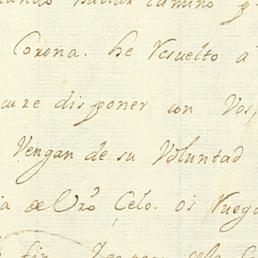 camino p
Corona. he resuelto a
disponer con Vos,
Vengan de su Voluntad
a de Vrõ Celo. os ruego
fin